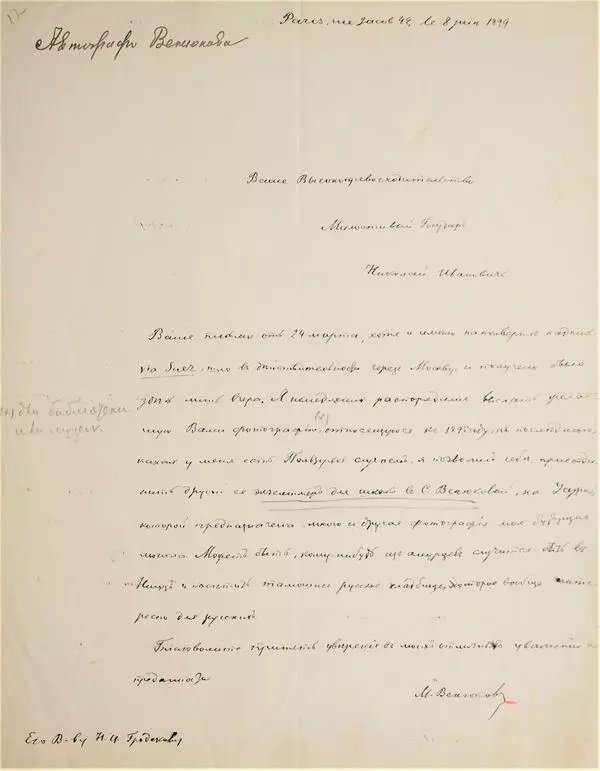 Paris, rue Jacob 49, le 8 juin 1899
Автографъ Венюкова
Ваше Высокопревосходительство
Милостивый Государь
Николай Ивановичъ
Ваше письмо отъ 24 марта, хотя и имело на конверте надпись
via Suez, шло въ действительности через Москву и получено было
здесь лишь вчера. Я немедленно распорядился выслать желае-
мую Вами фотографію, относящуюся къ 1895 году, къ последней,
какая у меня есть. Пользуясь случаемъ, я позволяю себе присоеди-
нить другой ея экземпляръ для школы въ С. Венюковой, на Уссури,
которой предназначена мною и другая фотографія моя будущая
могила. Можетъ быть, кому нибудь из амурцевъ случится быть въ
Ницце и посетить тамошнее русское кладбище, которое вообще инте-
ресно для русскихъ.
Благоволите принять уверение въ моемъ отличномъ уваженіи и
преданности
М. Венюковъ
Его В-ву Н. И. Гродекову
для библіотеки
или музея